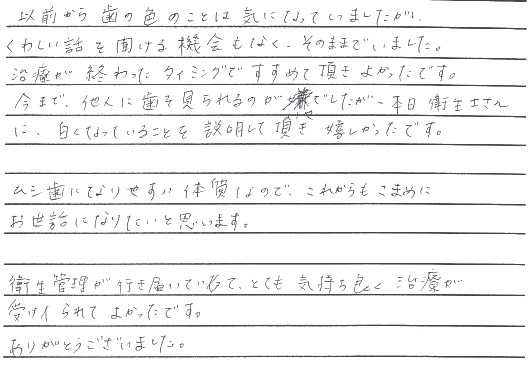 以前から歯の色のことは気になっていましたが、
くわしい話を聞ける機会もなく、そのままでいました。
治療が終わったタイミングですすめて頂きよかったです。
今まで、他人に歯を見られるのが嫌でしたが、本日衛生士さん
に、白くなっていることを説明して頂き嬉しかったです。
ムシ歯になりやすい体質なので、これからもこまめに
お世話になりたいと思います。
衛生管理が行き届いていて、とても気持ち良く治療が
受けられてよかったです。
ありがとうございました。